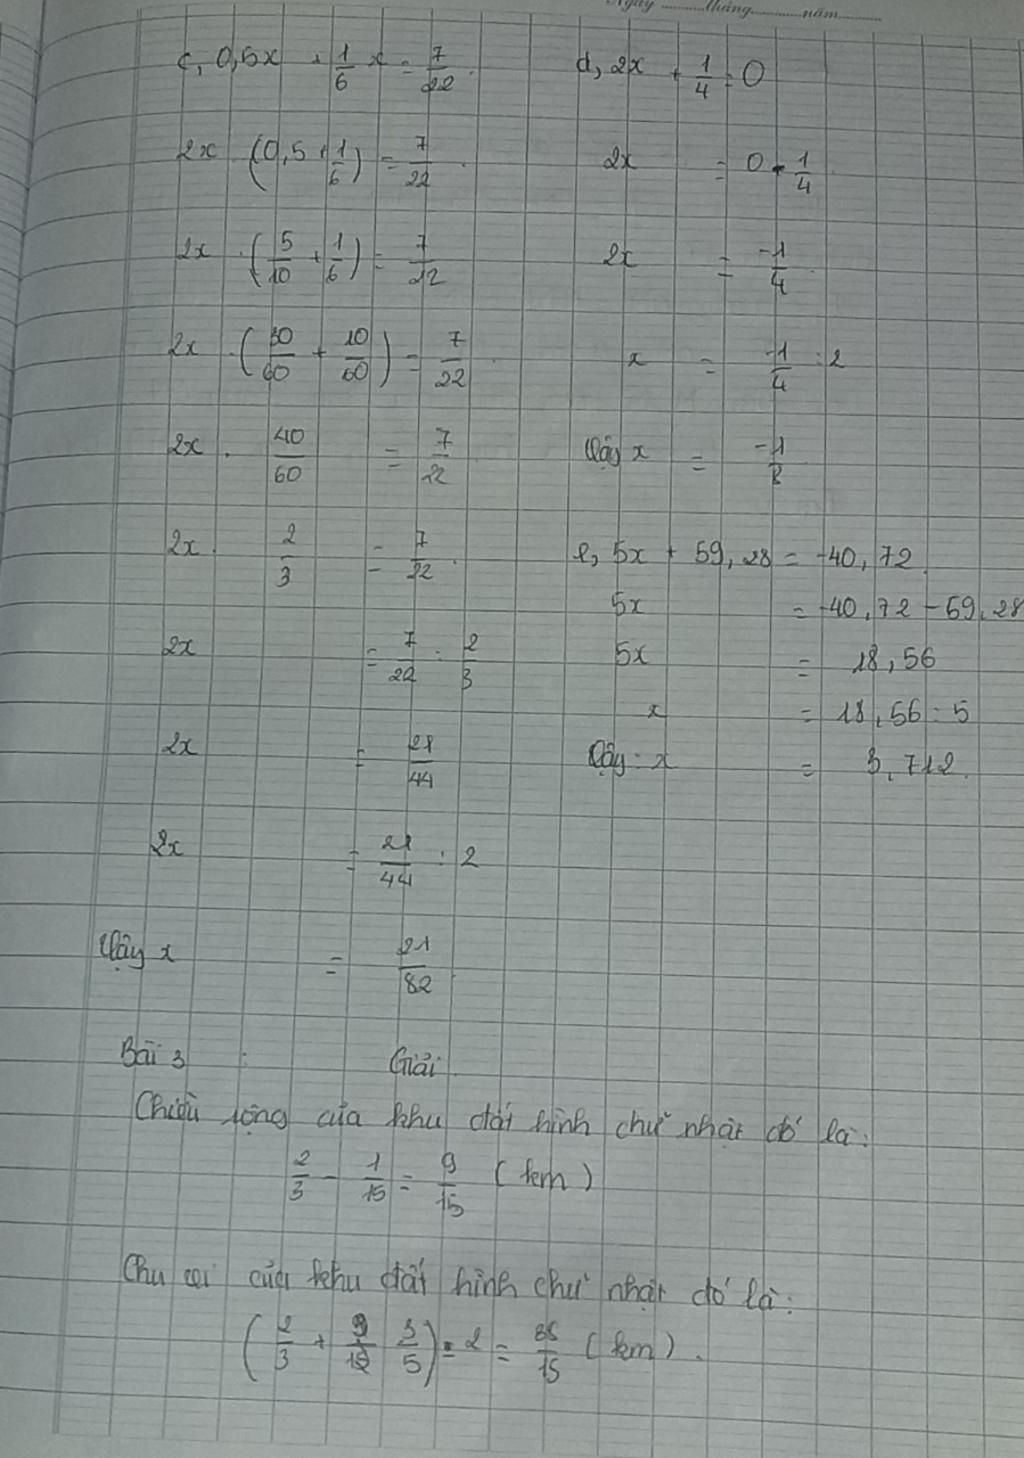 Ngày ........ tháng ........ năm ........
c, 0,5x + 1/6 x = 7/22
2x (0,5 + 1/6) = 7/22
2x . (5/10 + 1/6) = 7/22
2x . (30/60 + 10/60) = 7/22
2x . 40/60 = 7/22
2x . 2/3 = 7/22
2x = 7/22 : 2/3
2x = 21/44
2x = 21/44 : 2
Vậy x = 21/82
d, 2x + 1/4 = 0
2x = 0 - 1/4
2x = -1/4
x = -1/4 : 2
Vậy x = -1/8
e, 5x + 59,28 = -40,72
5x = -40,72 - 59,28
5x = 18,56
x = 18,56 : 5
Vậy : x = 3,712
Bài 3 : Giải
Chiều rộng của khu đất hình chữ nhật đó là :
2/3 - 1/15 = 9/15 (km)
Chu vi của khu đất hình chữ nhật đó là :
(2/3 + 3/5) . 2 = 38/15 (km).